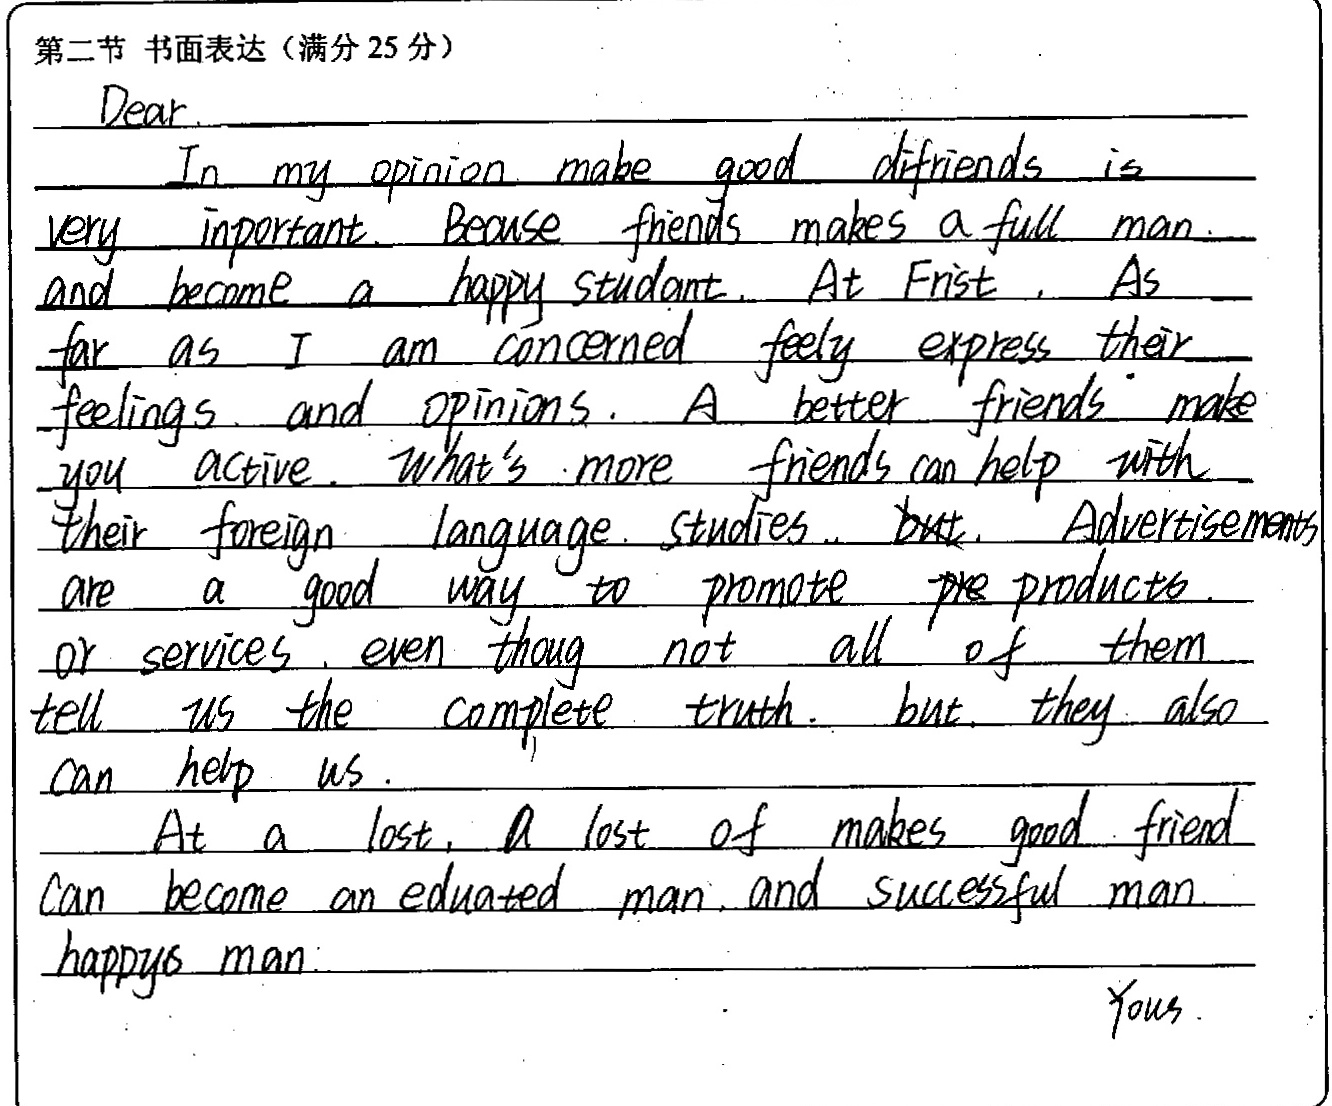 第二节 书面表达（满分 25 分）
Dear.
In my opinion make good difriends is
very inportant. Beause friends makes a full man.
and become a happy studant. At Frist. As
far as I am concerned feely express their
feelings and opinions. A better friends make
you active. What's more friends can help with
their foreign language studies. but. Advertisements
are a good way to promote pre products.
or services. even thoug not all of them
tell us the complete truth. but. they also
can help us.
At a lost, A lost of makes good friend
can become an eduated man. and successful man.
happys man.
Yous.